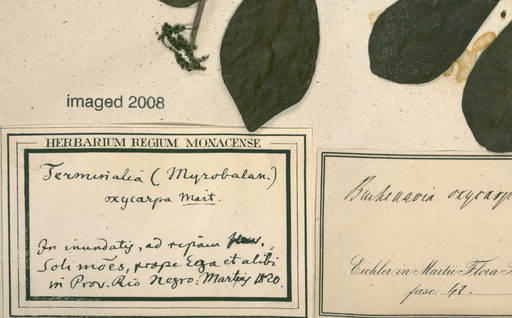 imaged 2008
HERBARIUM REGIUM MONACENSE
Terminalia (Myrobalan.)
oxycarpa Mart.
In inundatis, ad ripam flum.
Solimões, prope Ega et alibi
in Prov. Rio Negro. Martius 1820.
Buchenavia oxycarp
Eichler in Martii Flora
fasc. 42.